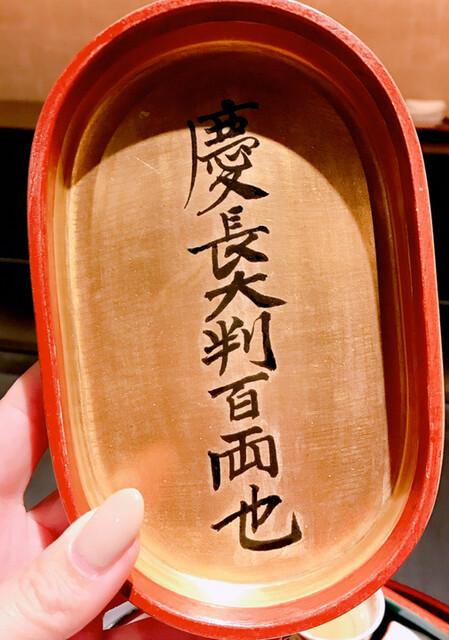 慶長大判百両也